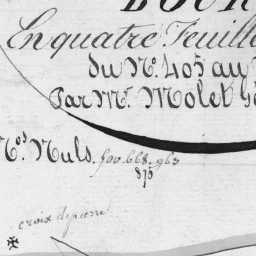 BOUR
En quatre Feuille
du N.° 405 au
Par M.r Molet Gé
N.os Nuls. 600. 668. 963
875
croix de pierre